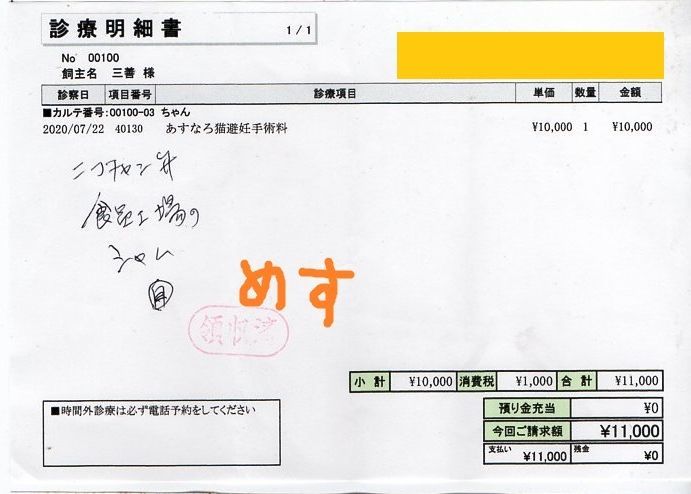 診療明細書
1/1
No 00100
飼主名 三善 様
診察日 項目番号 診療項目 単価 数量 金額
■カルテ番号:00100-03 ちゃん
2020/07/22 40130 あすなろ猫避妊手術料 ¥10,000 1 ¥10,000
ニコチャン
食品工場の
シャム
めす
領収済
小計 ¥10,000 消費税 ¥1,000 合計 ¥11,000
■時間外診療は必ず電話予約をしてください
預り金充当 ¥0
今回ご請求額 ¥11,000
支払い ¥11,000 残金 ¥0